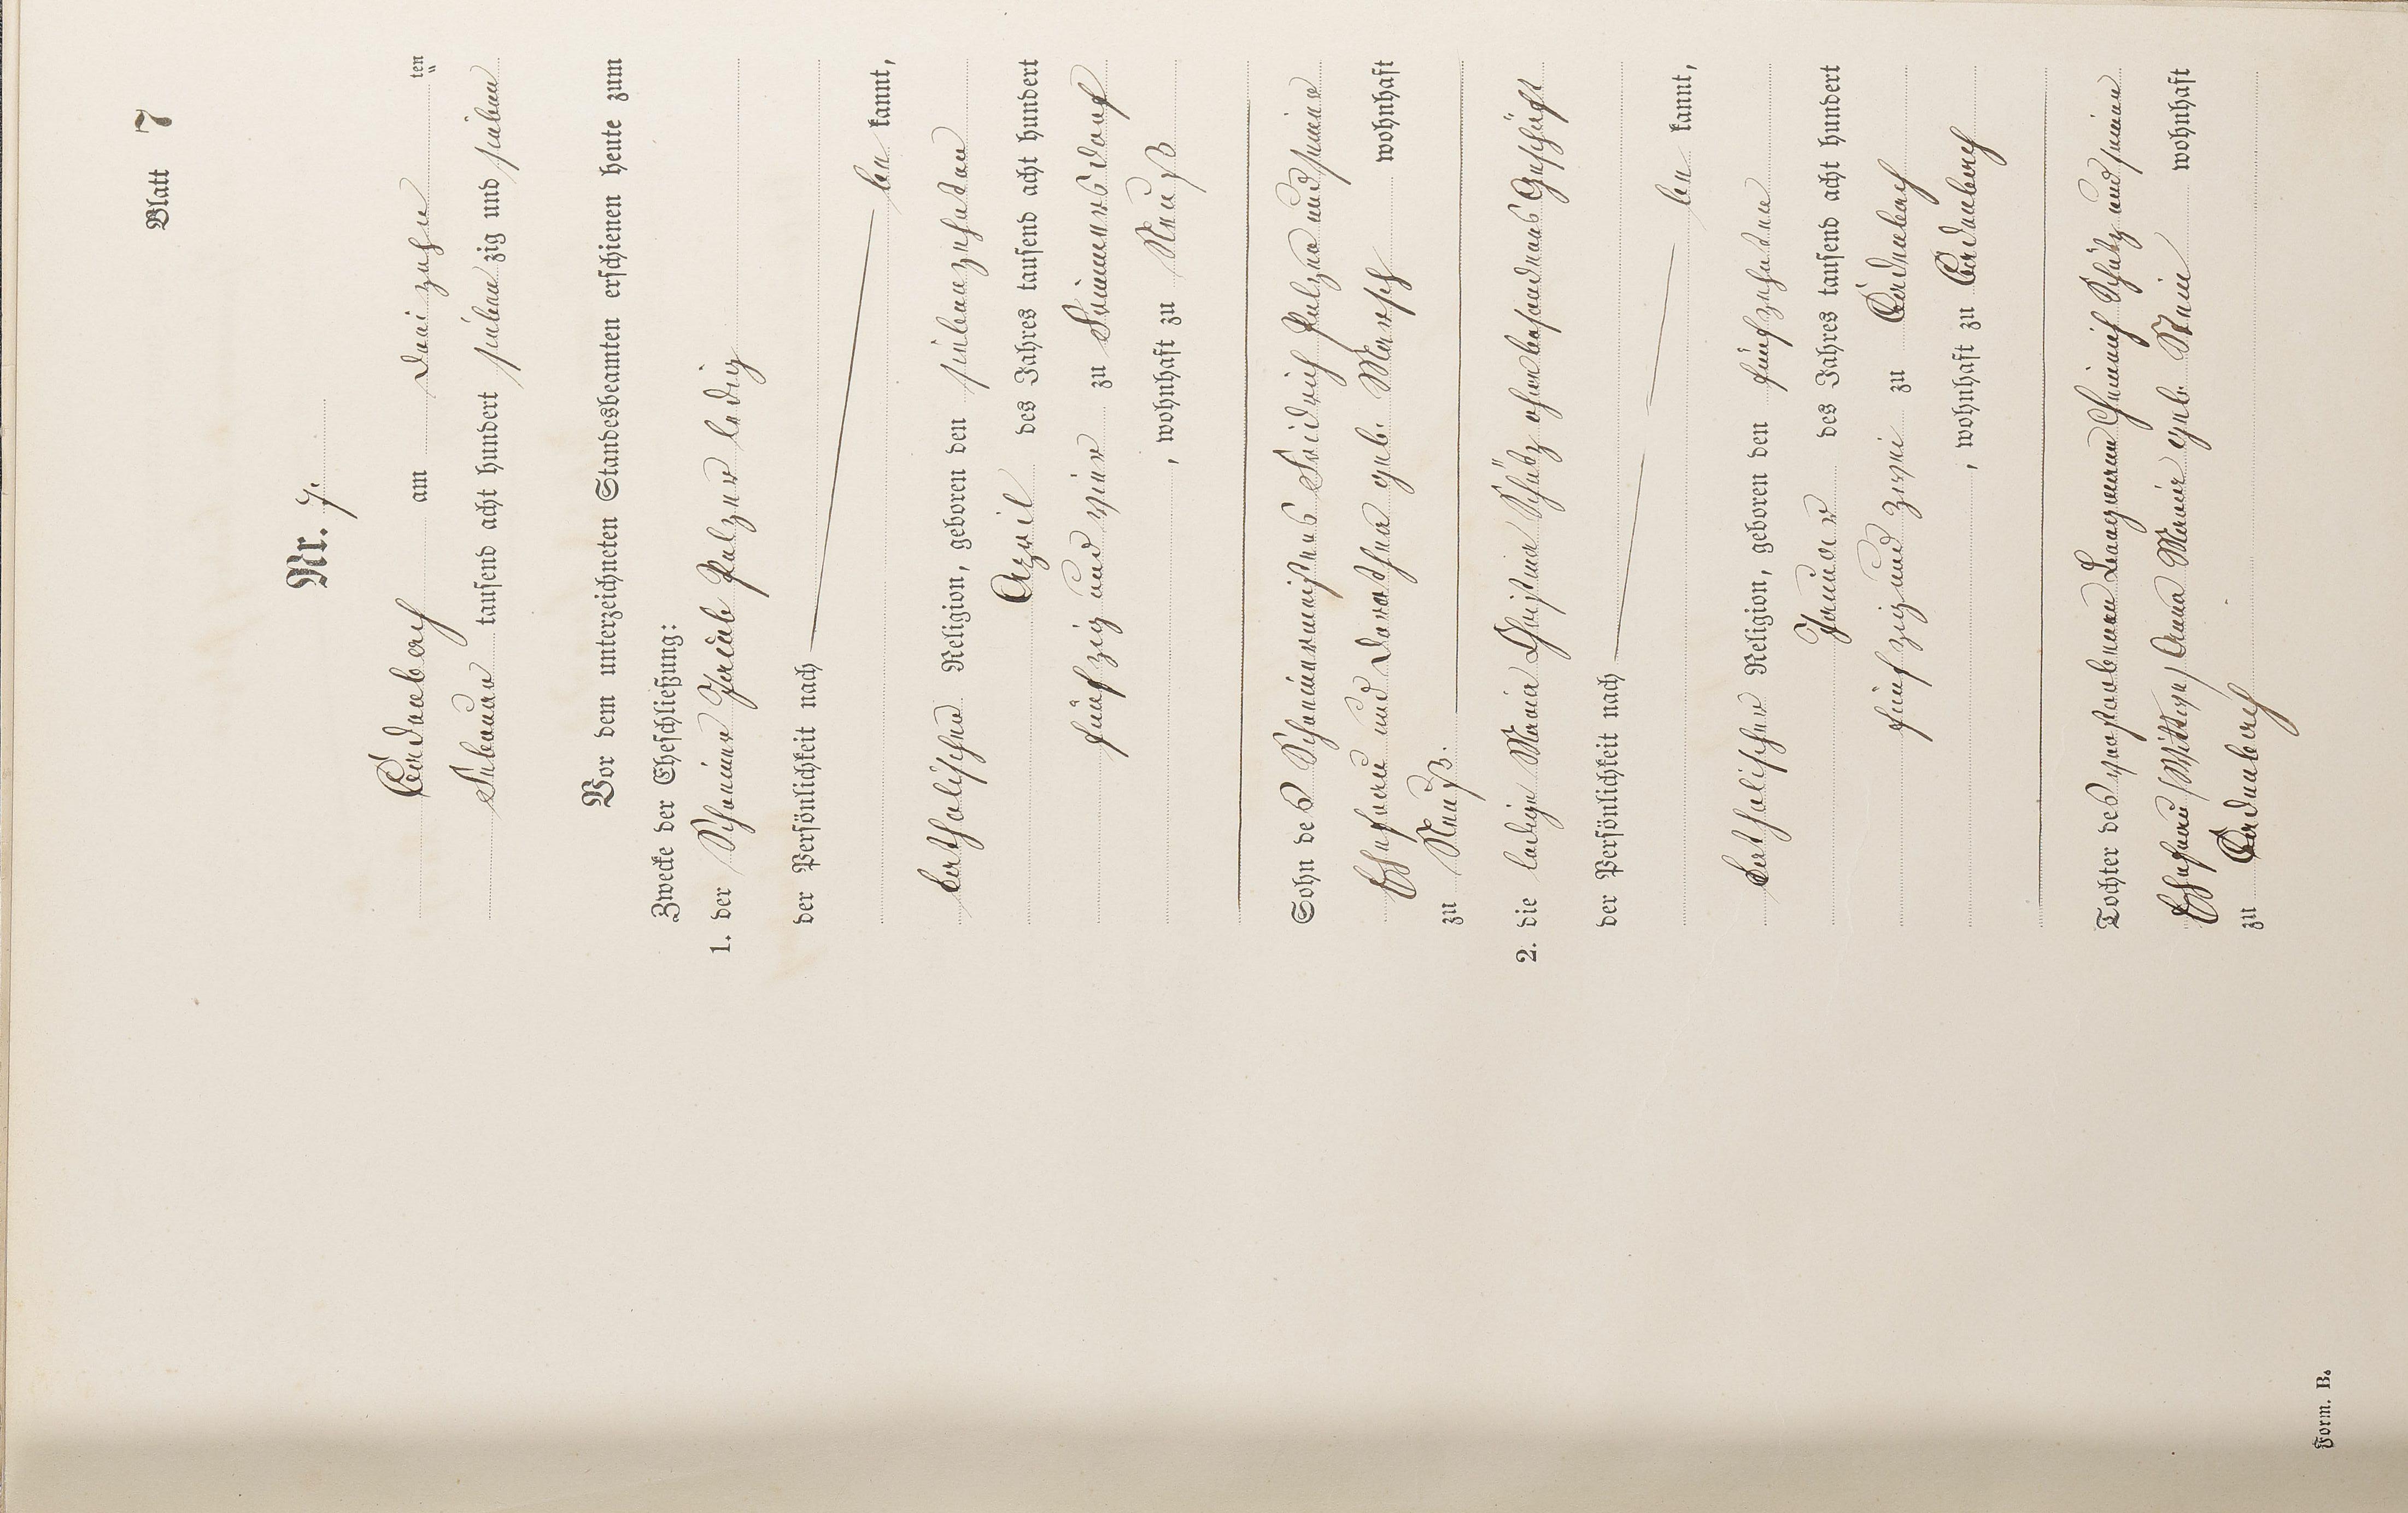 Blatt 7
Nr. 7.
Cadenbach am drei zehn ten
Februar tausend acht hundert sieben zig und sieben
Vor dem unterzeichneten Standesbeamten erschienen heute zum
Zwecke der Eheschließung:
1. der Schreiner Jacob Pelzer ledig
der Persönlichkeit nach
be kannt,
katholischer Religion, geboren den siebenzehnten
April des Jahres tausend acht hundert
fünfzig und vier zu
, wohnhaft zu
Sohn des Schreinermeisters Friedrich Pelzer und seiner
Ehefrau und Dorothea geb. wohnhaft
zu
2. die ledige Maria Christina Schütz ohne besonderes Geschäft
der Persönlichkeit nach
be kannt,
katholischer Religion, geboren den fünfzehnten
Januar des Jahres tausend acht hundert
fünf zig und zwei zu Cadenbach
, wohnhaft zu Cadenbach
Tochter des verstorbenen Heinrich Schütz und seiner
Ehefrau Anna Maria geb. wohnhaft
zu Cadenbach
Form. B.